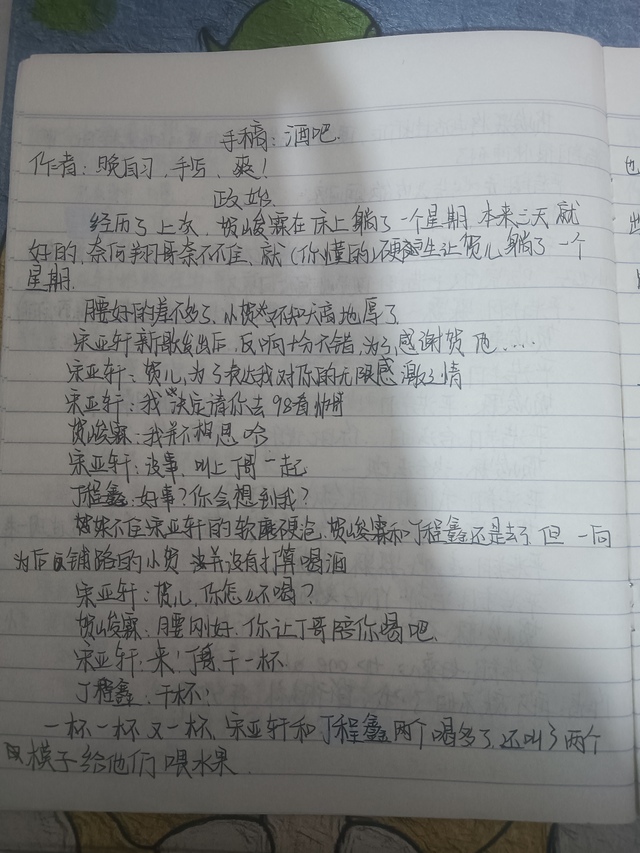 手稿：酒吧.
作者：晚自习，手写，爽！
政始.
经历了上次，贺峻霖在床上躺了一个星期 本来三天就
好的，奈何翔哥奈不住，就（你懂的）硬生生让贺儿躺了一个
星期.
腰好的差不多了，小贺又不知天高地厚了
宋亚轩新歌发出后，反响十分不错，为了感谢贺 他....
宋亚轩：贺儿，为了表达我对你的无限感激之情
宋亚轩：我决定请你去98看帅哥
贺峻霖：我并不想思哈
宋亚轩：没事，叫上丁哥一起
丁程鑫：好事？你会想到我？
宋亚轩的软磨硬泡，贺峻霖和丁程鑫还是去了 但 一向
为后反铺路的小贺 并没有打算喝酒
宋亚轩：贺儿，你怎么不喝？
贺峻霖：腰刚好，你让丁哥陪你喝吧.
宋亚轩：来！丁哥，干一杯.
丁程鑫：干杯！
一杯一杯又一杯，宋亚轩和丁程鑫两个喝多了，还叫了两个
模子给他们喂水果.